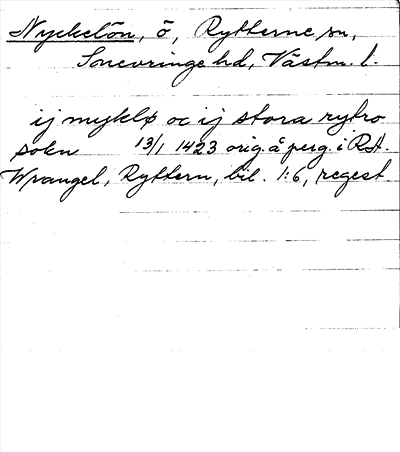 Nyckelön, ö, Rytterne sn,
Snevringe hd, Västm. l.
ij myklø oc ij stora rytro
sokn 13/1 1423 orig. å perg. i RA.
Wrangel, Ryttern, bil. 1:6, regest